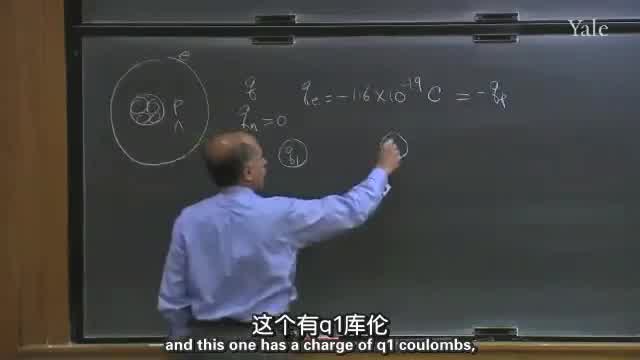 Yale
e
q
q_e = -1.6 × 10^-19 C = -q_p
P
n
q_n = 0
q_1
这个有q1库伦
and this one has a charge of q1 coulombs,